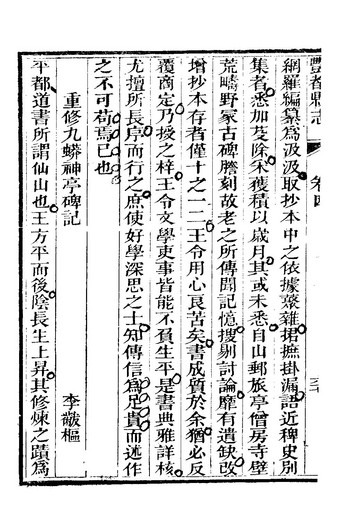 酆都縣志
卷四
網羅編纂爲汲汲取抄本中之依據叢雜捃摭掛漏語近稗史別
集者悉加芟除采獲積以歲月其或未悉自山郵旅亭僧房寺壁
荒疇野冢古碑謄刻故老之所傳聞記憶搜剔討論靡有遺缺改
增抄本存者僅十之一二王令用心良苦矣書成質於余猶必反
覆商定乃授之梓王令文學吏事皆能不負生平是書典雅詳核
尤擅所長亭而行之庶使好學深思之士知傳信爲足貴而述作
之不可苟焉已也
重修九蟒神亭碑記
李嶽樞
平都道書所謂仙山也王方平而後陰長生上昇其修煉之蹟爲